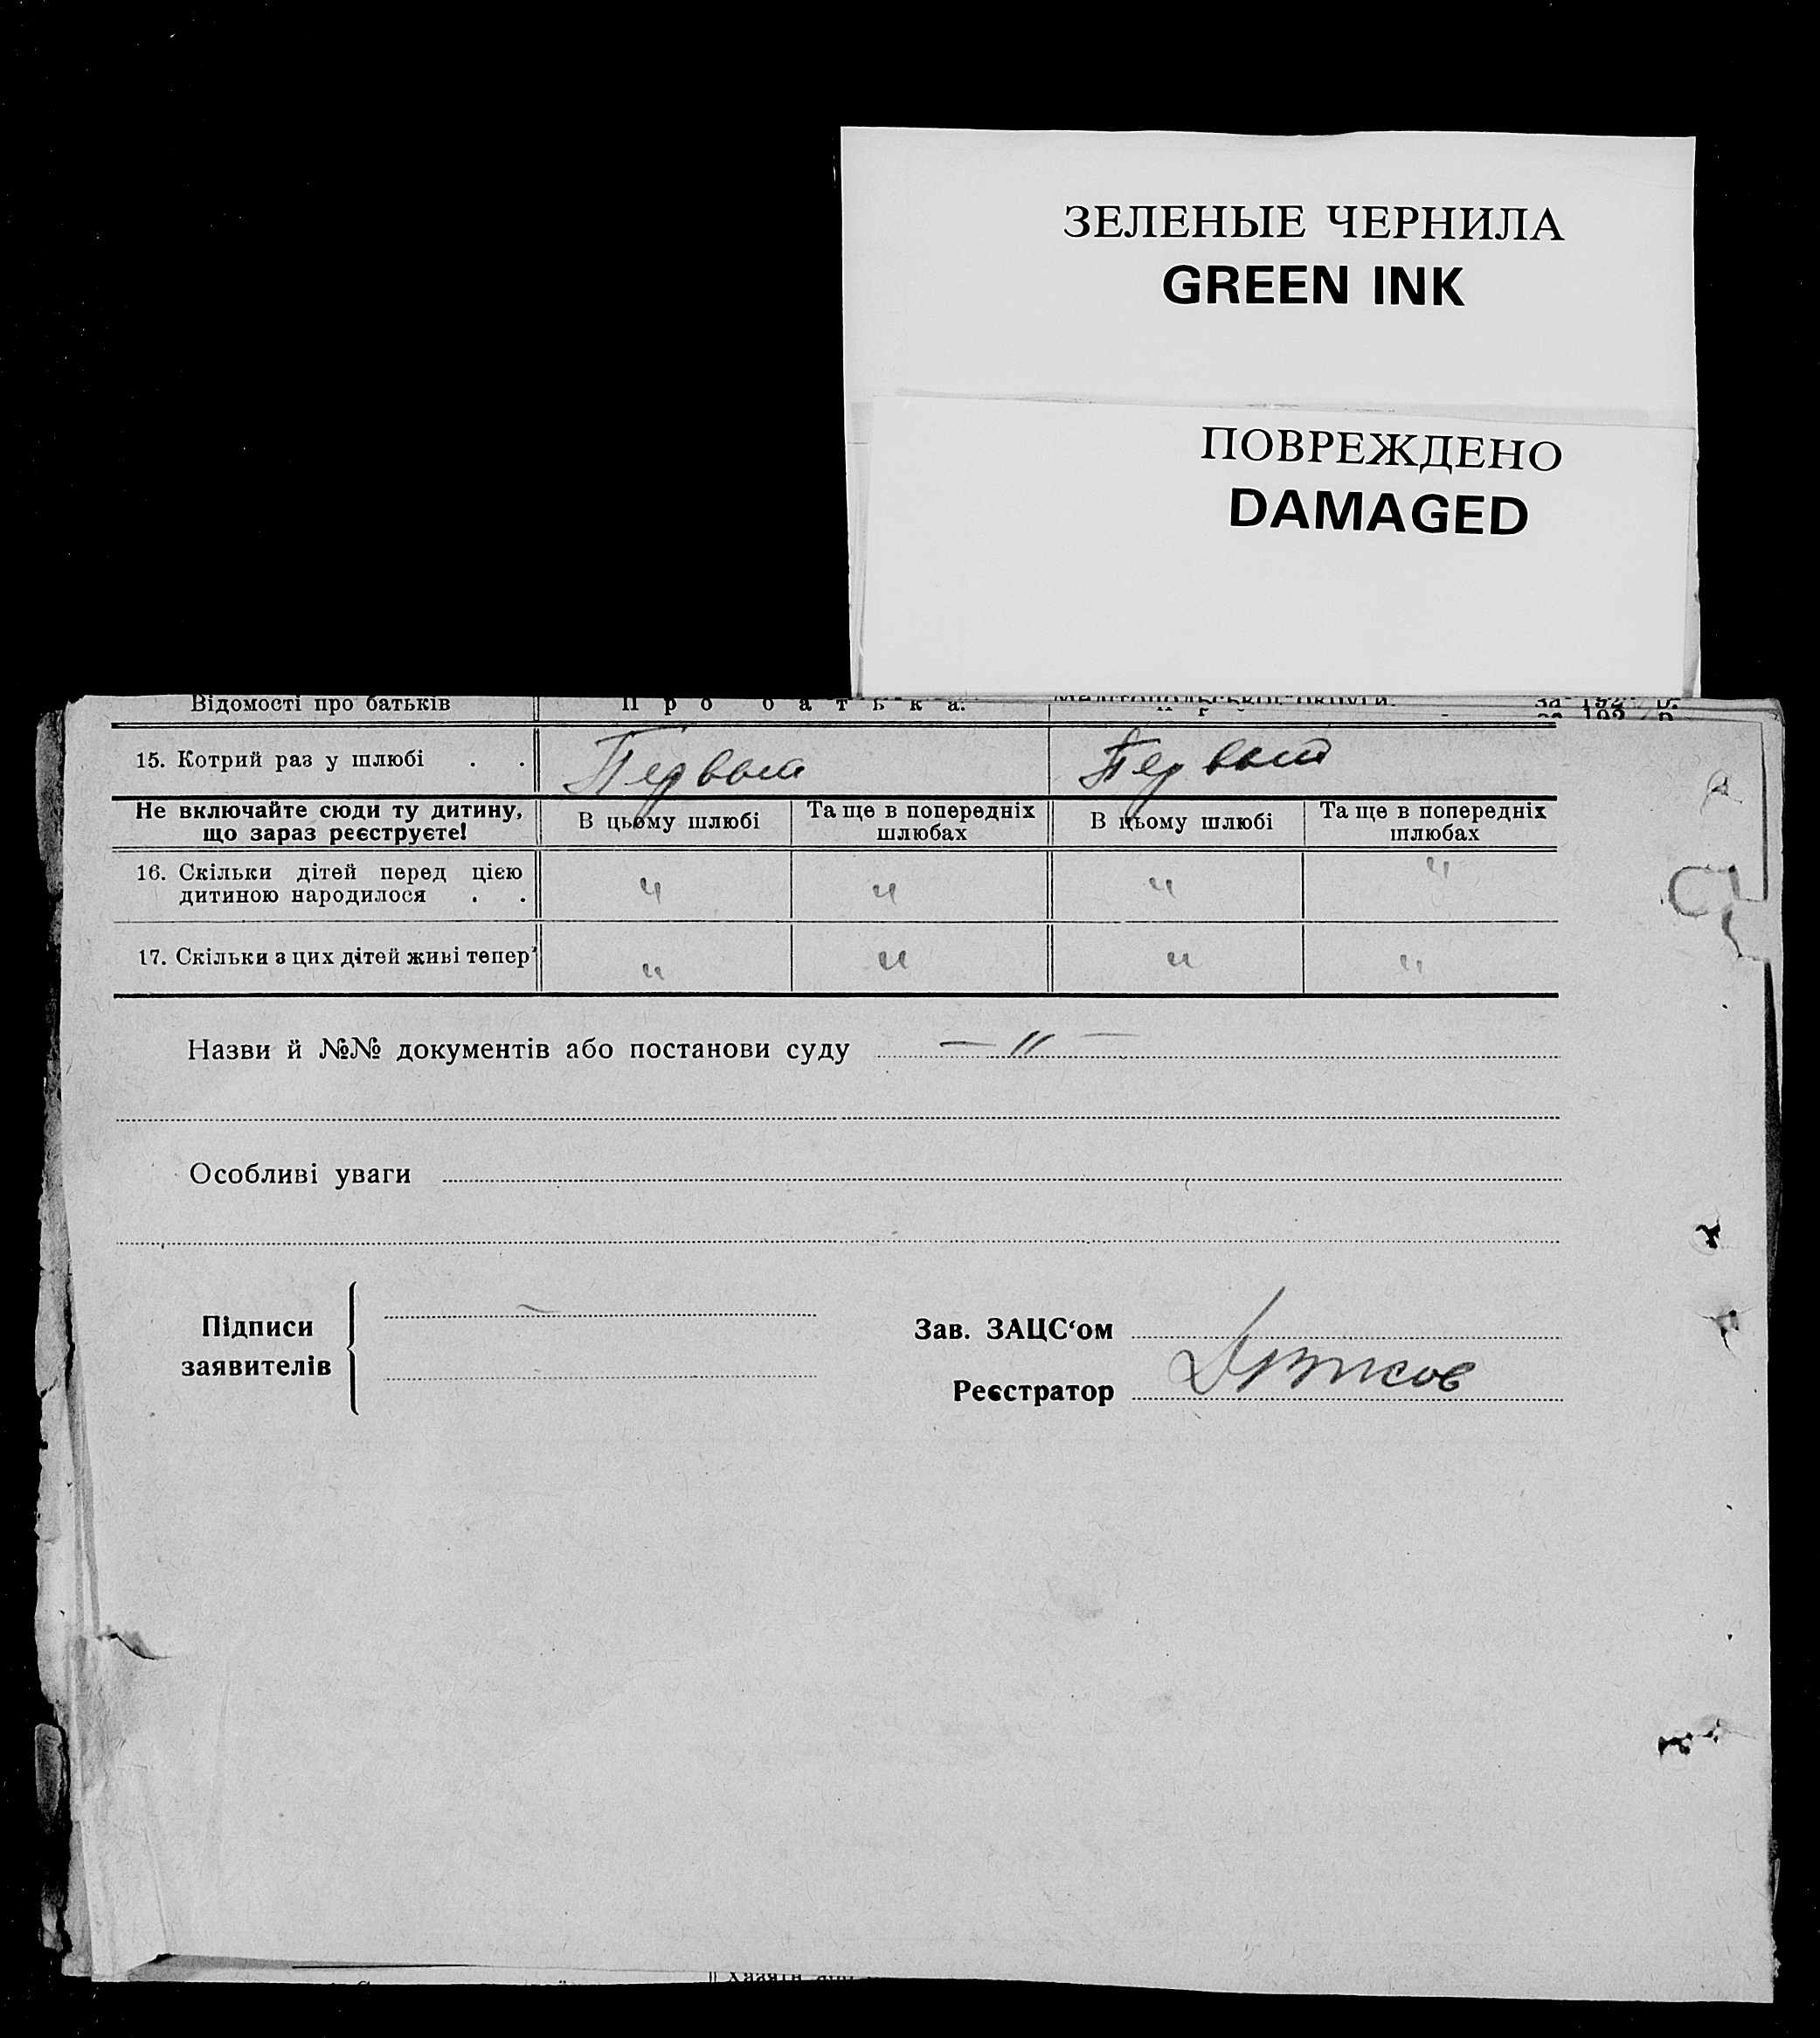 ЗЕЛЕНЫЕ ЧЕРНИЛА
GREEN INK
ПОВРЕЖДЕНО
DAMAGED
Мелітопольської округи за 192 р.
Відомості про батьків Про батька:
15. Котрий раз у шлюбі . . Первый Первый
Не включайте сюди ту дитину, що зараз реєструєте! В цьому шлюбі Та ще в попередніх шлюбах В цьому шлюбі Та ще в попередніх шлюбах
16. Скільки дітей перед цією дитиною народилося . . " " " "
17. Скільки з цих дітей живі тепер " " " "
Назви й №№ документів або постанови суду — " —
Особливі уваги
Підписи заявителів
Зав. ЗАЦС‘ом
Реєстратор